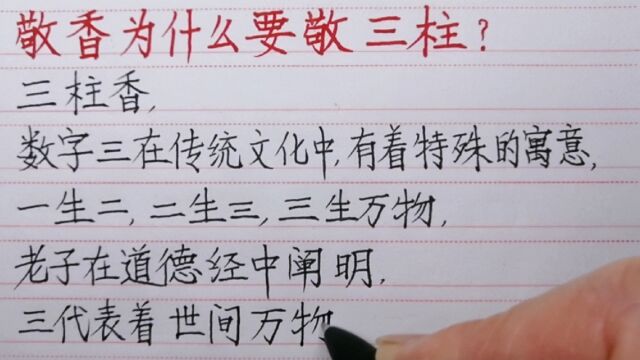 敬香为什么要敬三柱？
三柱香，
数字三在传统文化中，有着特殊的寓意，
一生二，二生三，三生万物，
老子在道德经中阐明，
三代表着世间万物